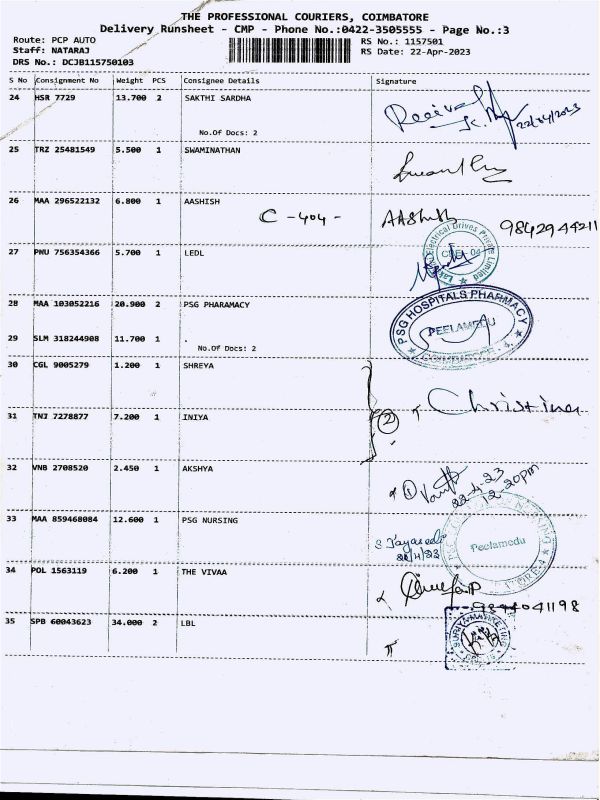 THE PROFESSIONAL COURIERS, COIMBATORE
Delivery Runsheet - CMP - Phone No.:0422-3505555 - Page No.:3
Route: PCP AUTO
Staff: NATARAJ
DRS No.: DCJB115750103
RS No.: 1157501
RS Date: 22-Apr-2023
S No Consignment No Weight PCS Consignee Details Signature
24 HSR 7729 13.700 2 SAKTHI SARDHA
No.Of Docs: 2
22/04/2023
25 TRZ 25481549 5.500 1 SWAMINATHAN
26 MAA 296522132 6.800 1 AASHISH
C - 404 - AAshish 9842944211
27 PNU 756354366 5.700 1 LEDL
Electrical Drives Private Limited
28 MAA 103052216 20.900 2 PSG PHARAMACY
PSG HOSPITALS PHARMACY
PEELAMEDU
COIMBATORE - 4.
29 SLM 318244908 11.700 1 .
No.Of Docs: 2
30 CGL 9005279 1.200 1 SHREYA
2 Christina
31 TNJ 7278877 7.200 1 INIYA
32 VNB 2708520 2.450 1 AKSHYA
1
22-4-23
12.20pm
33 MAA 859468084 12.600 1 PSG NURSING
Peelamedu
34 POL 1563119 6.200 1 THE VIVAA
9844041198
35 SPB 60043623 34.000 2 LBL